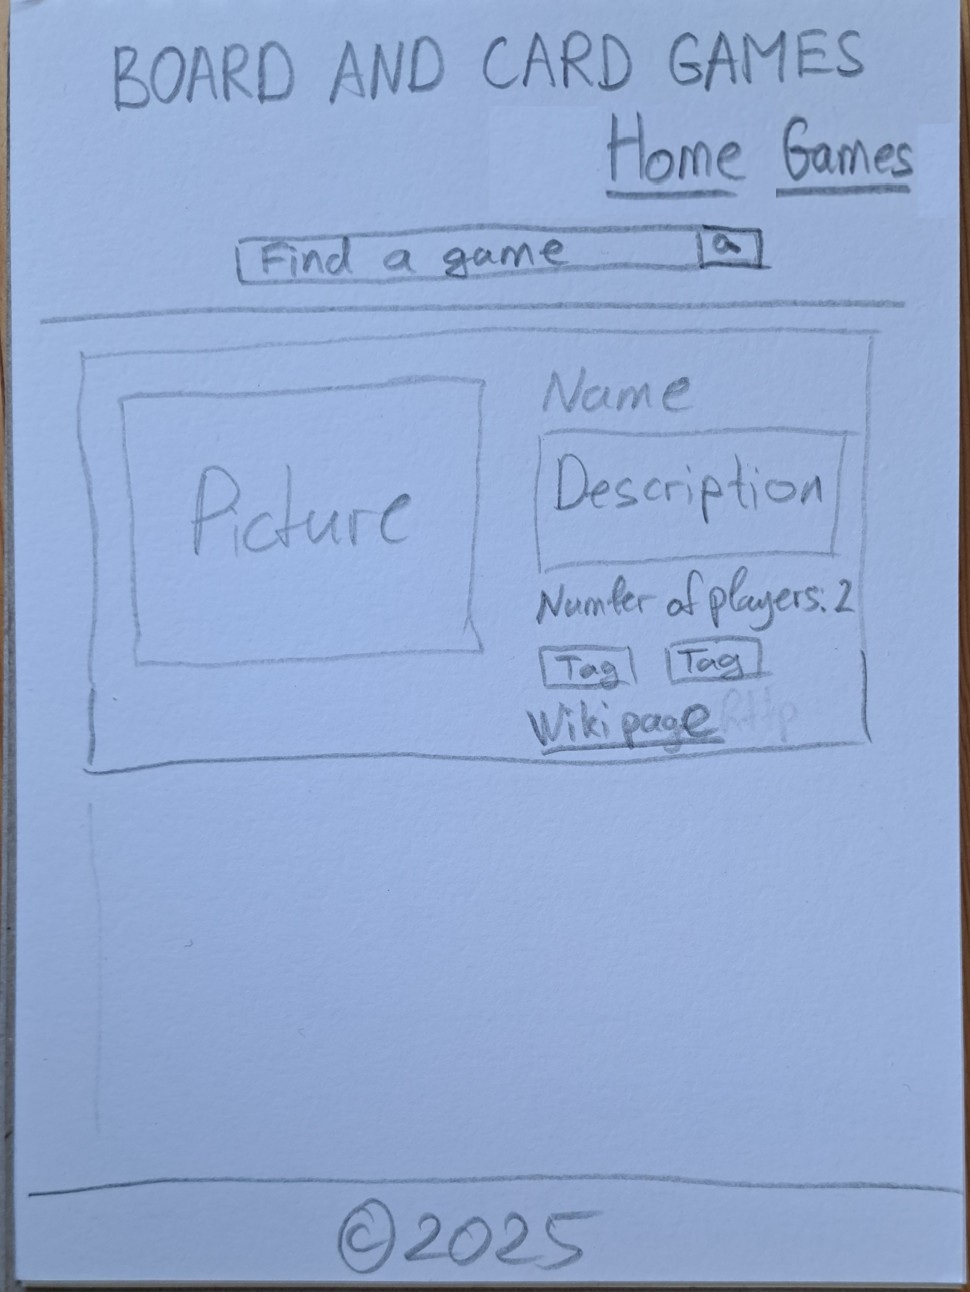 BOARD AND CARD GAMES
Home Games
Find a game a
Name
Picture
Description
Number of players: 2
Tag Tag
Wiki page
©2025